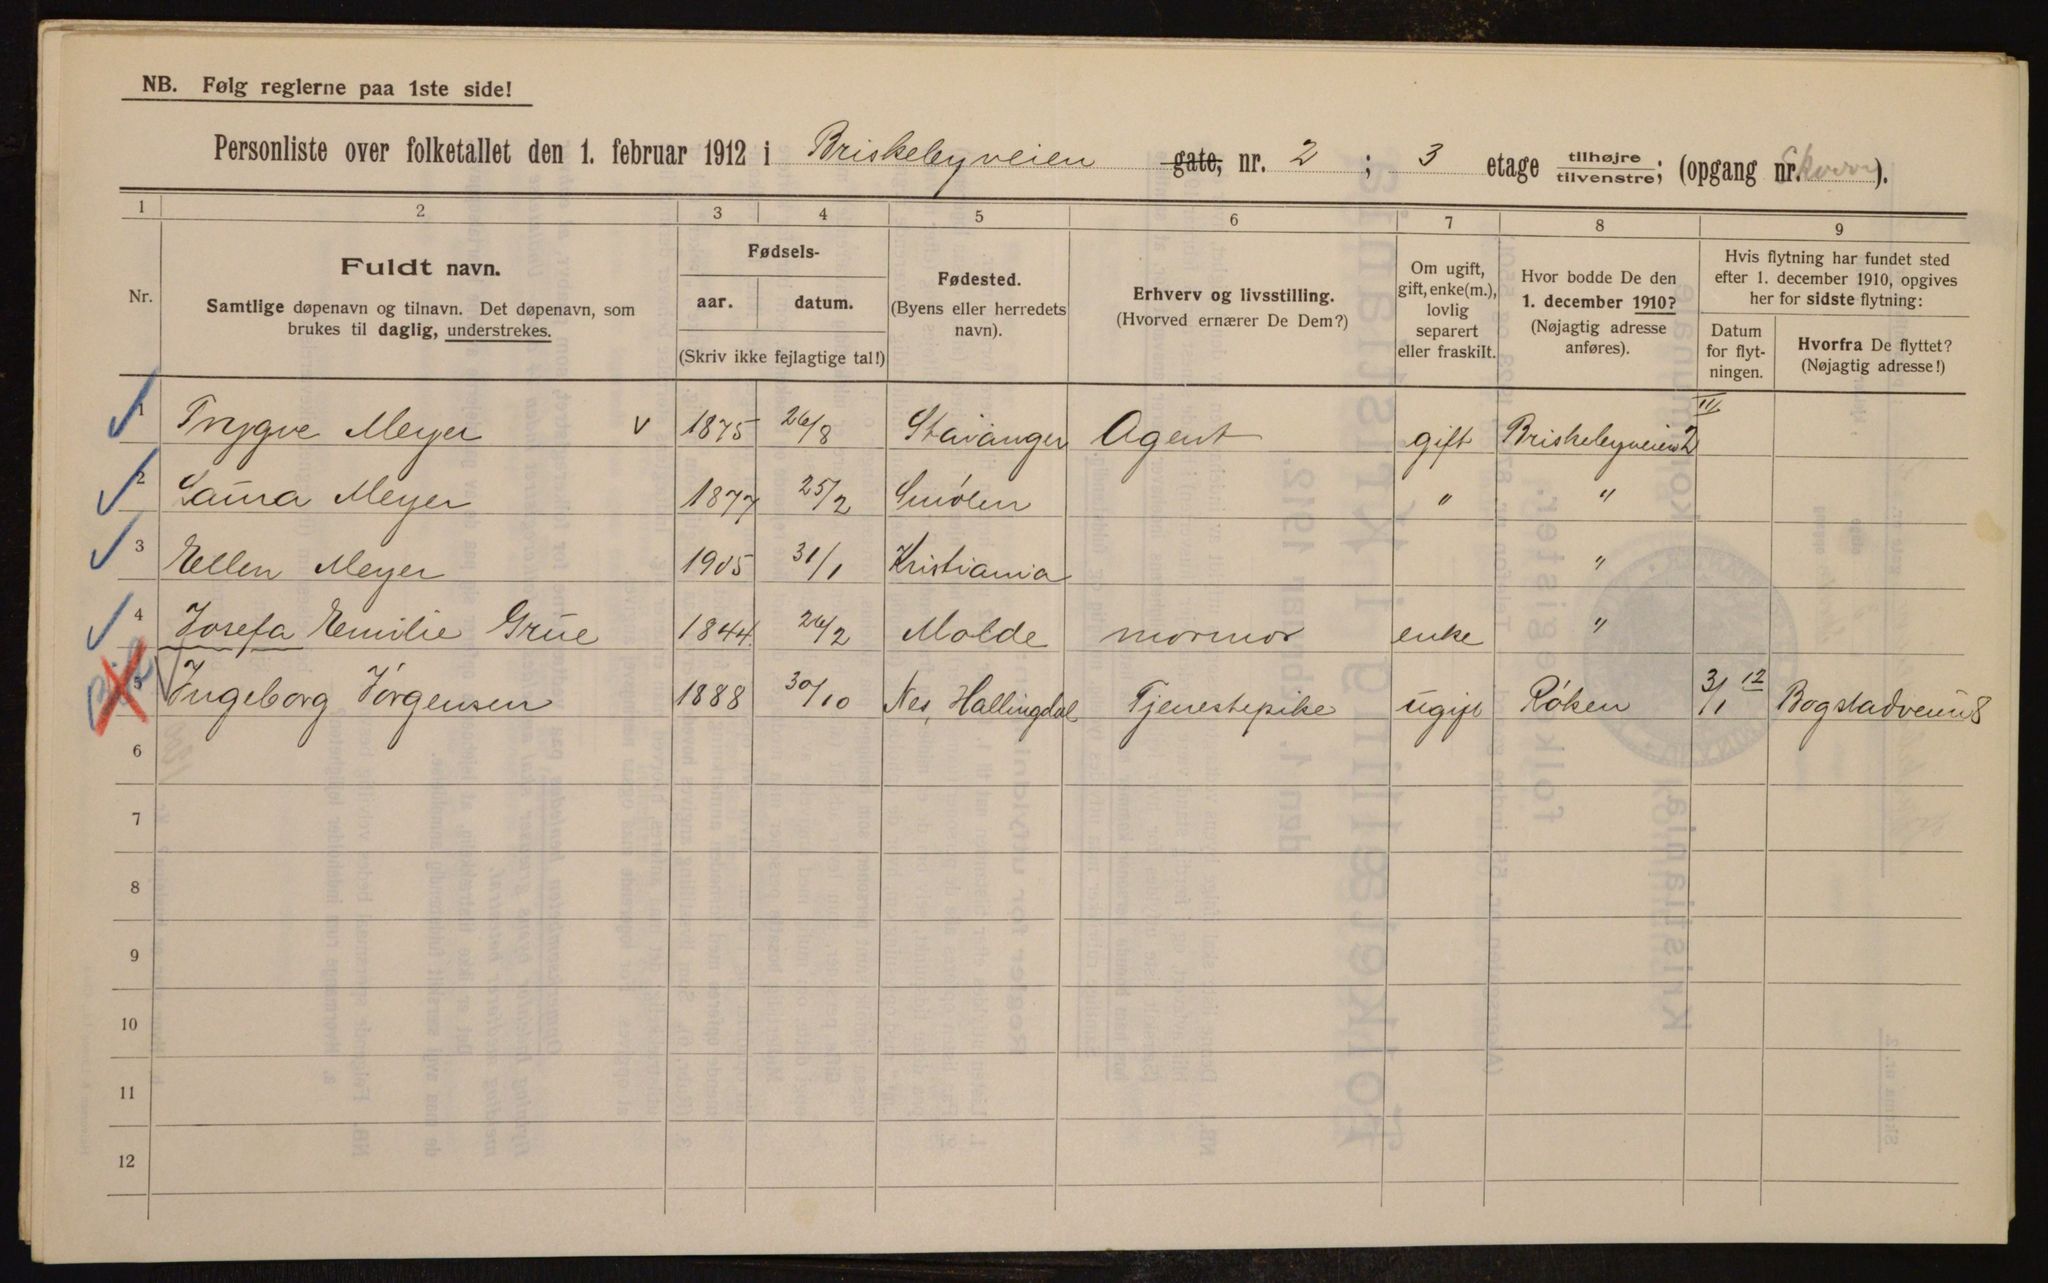 NB. Følg reglerne paa 1ste side!
Personliste over folketallet den 1. februar 1912 i Briskebyveien gate, nr. 2 ; 3 etage tilhøjre tilvenstre; (opgang nr. ).
1 2 3 4 5 6 7 8 9
Nr.
Fuldt navn.
Samtlige døpenavn og tilnavn. Det døpenavn, som
brukes til daglig, understrekes.
Fødsels-
aar. datum.
(Skriv ikke fejlagtige tal!)
Fødested.
(Byens eller herredets
navn).
Erhverv og livsstilling.
(Hvorved ernærer De Dem?)
Om ugift,
gift, enke(m.),
lovlig
separert
eller fraskilt.
Hvor bodde De den
1. december 1910?
(Nøjagtig adresse
anføres).
Hvis flytning har fundet sted
efter 1. december 1910, opgives
her for sidste flytning:
Datum
for flyt-
ningen.
Hvorfra De flyttet?
(Nøjagtig adresse!)
1 Trygve Meyer v 1875 26/8 Stavanger Agent gift Briskebyveien 2 III
2 Laura Meyer 1877 25/2 Smølen " "
3 Ellen Meyer 1905 31/1 Kristiania "
4 Josefa Emilie Grüe 1844 26/2 Molde mormor enke "
5 Ingeborg Jørgensen 1888 30/10 Nes, Hallingdal Tjenestepike ugift Røken 3/1 12 Bogstadveien 8
6
7
8
9
10
11
12